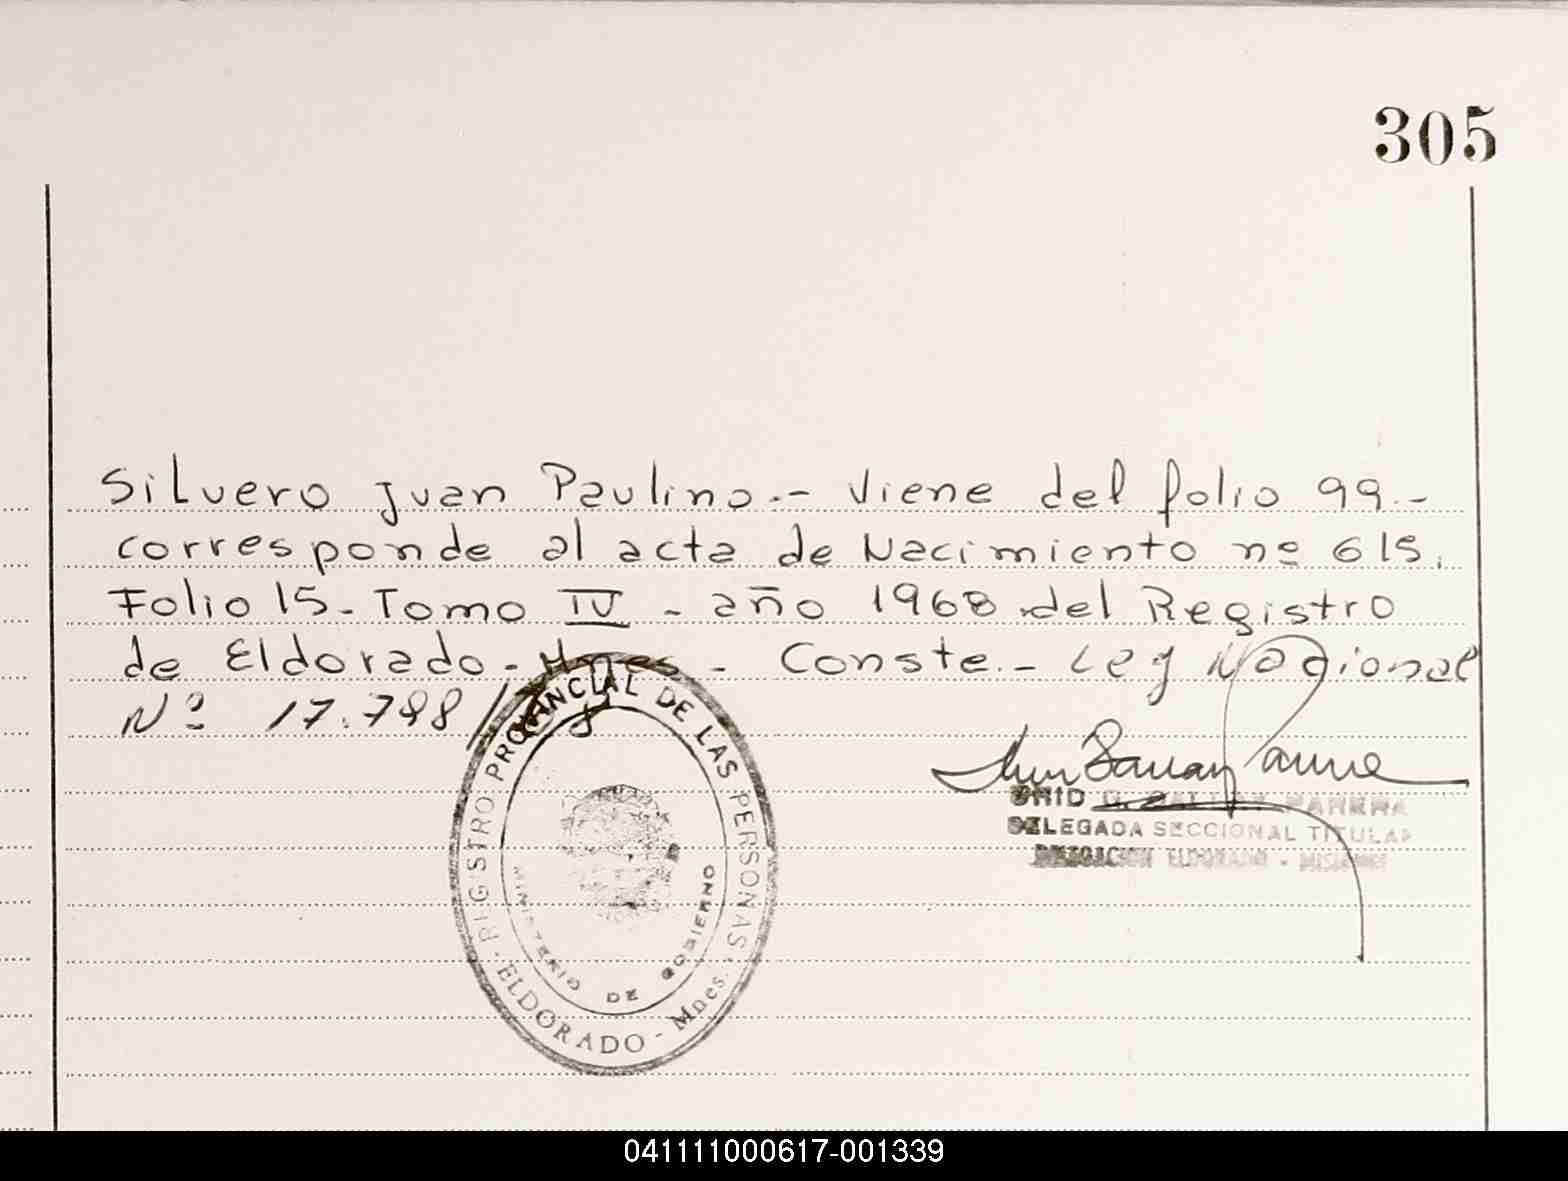 305
Silvero Juan Paulino.- Viene del folio 99.-
corresponde al acta de Nacimiento nº 615.
Folio 15. Tomo IV - año 1968 del Registro
de Eldorado - Mnes - Conste.- Ley Nacional
Nº 17.798
REGISTRO PROVINCIAL DE LAS PERSONAS
ELDORADO - Mnes.
MINISTERIO DE GOBIERNO
DELEGADA SECCIONAL TITULAR
DELEGACION ELDORADO - MISIONES
041111000617-001339